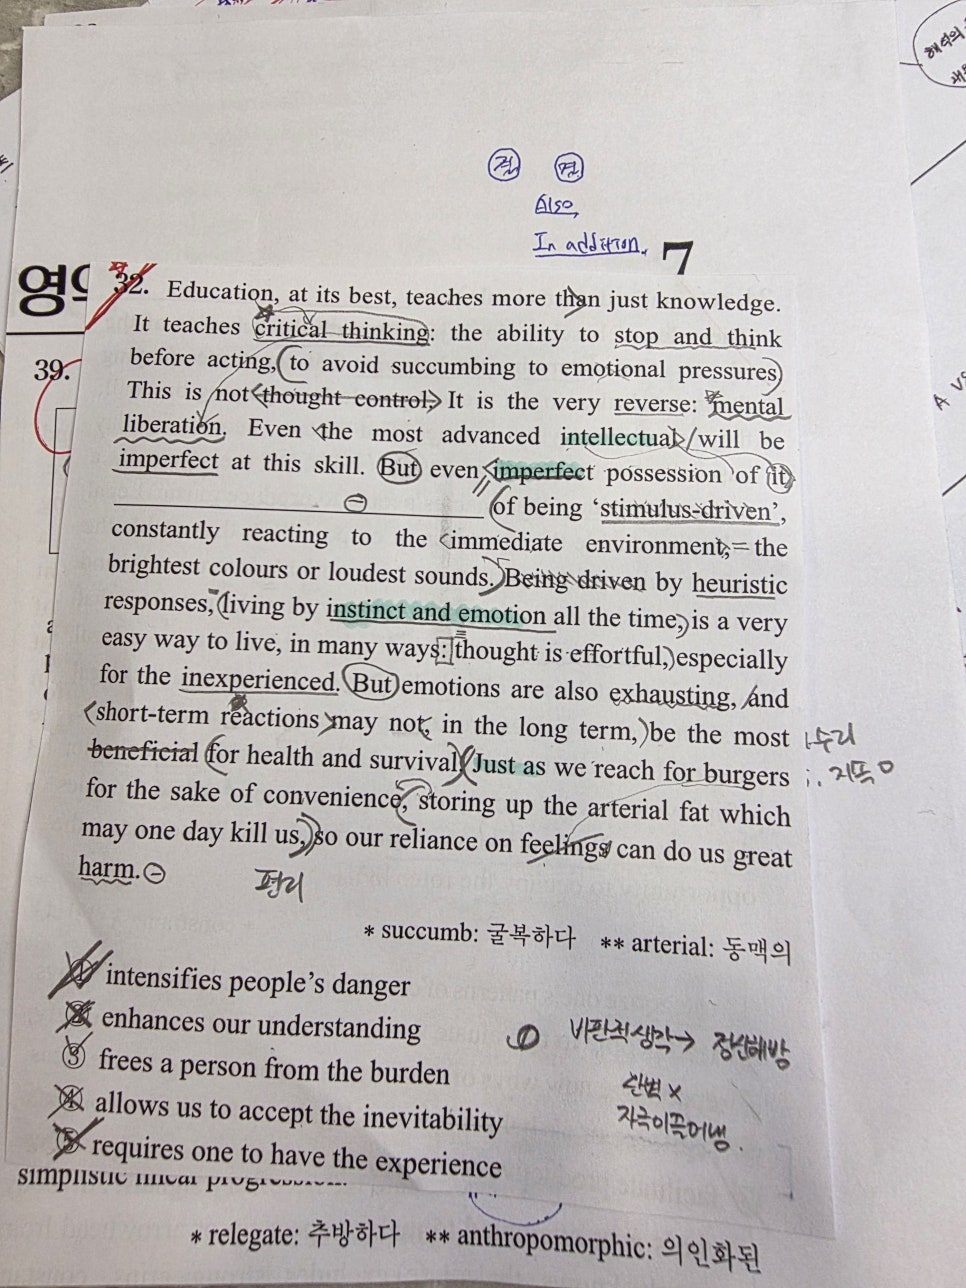 결 역
Also,
In addition.
7
영
32. Education, at its best, teaches more than just knowledge.
It teaches critical thinking: the ability to stop and think
before acting, to avoid succumbing to emotional pressures.
39.
This is not thought control. It is the very reverse: mental
liberation. Even the most advanced intellectual will be
imperfect at this skill. But even imperfect possession of it
of being ‘stimulus-driven’,
constantly reacting to the immediate environment, the
brightest colours or loudest sounds. Being driven by heuristic
responses, living by instinct and emotion all the time, is a very
easy way to live, in many ways: thought is effortful, especially
for the inexperienced. But emotions are also exhausting, and
short-term reactions may not, in the long term, be the most
beneficial for health and survival. Just as we reach for burgers
for the sake of convenience, storing up the arterial fat which
may one day kill us, so our reliance on feelings can do us great
harm.
편리
* succumb: 굴복하다 ** arterial: 동맥의
① intensifies people’s danger
② enhances our understanding
③ frees a person from the burden
④ allows us to accept the inevitability
⑤ requires one to have the experience
비판적생각→ 정신해방
simplistic linear progression.
* relegate: 추방하다 ** anthropomorphic: 의인화된
A vs